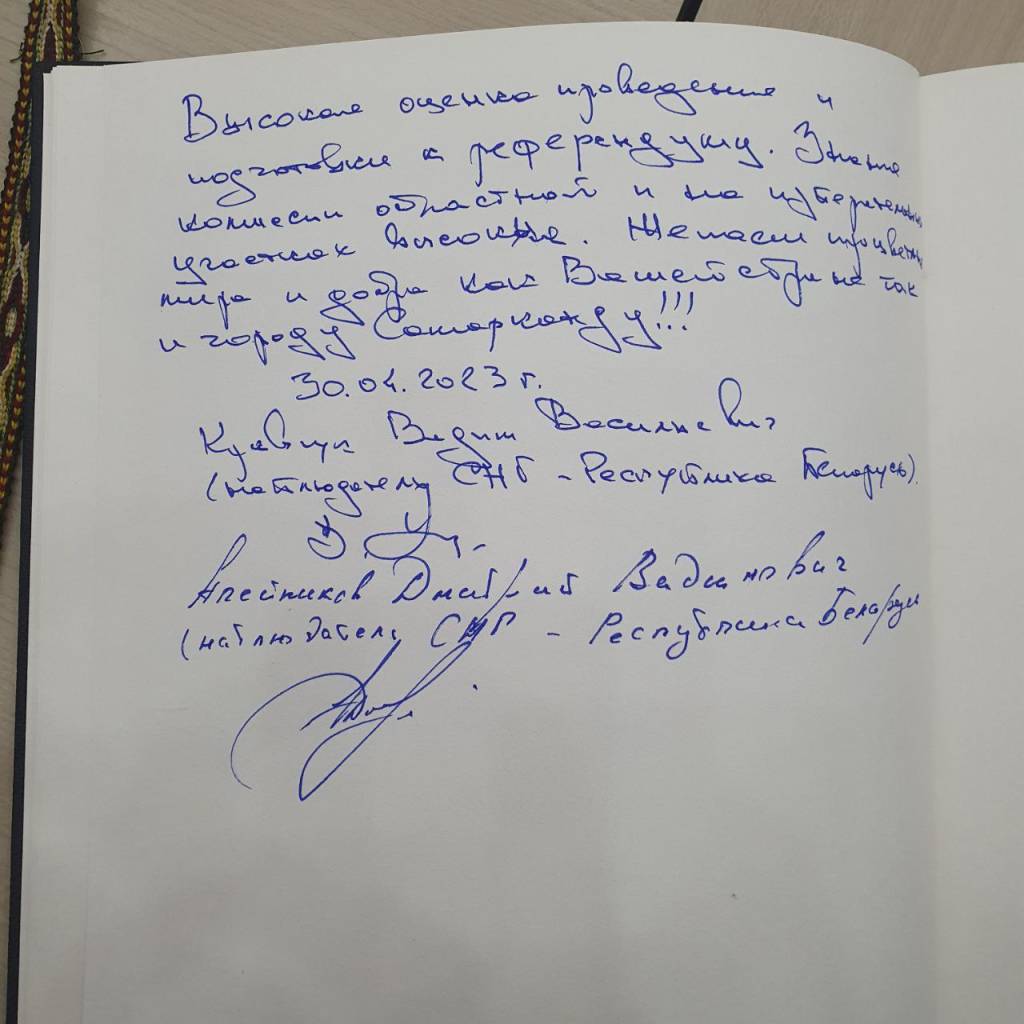 Высокая оценка проведения и
подготовки к референдуму. Знание
комиссии областной и на избирательных
участках высокие. Желаем процветания
мира и добра как Вашей стране так
и городу Самарканду!!!
30.04.2023 г.
Кравчук Вадим Васильевич
(наблюдатель СНГ - Республика Беларусь).
Алейников Дмитрий Вадимович
(наблюдатель СНГ - Республика Беларусь